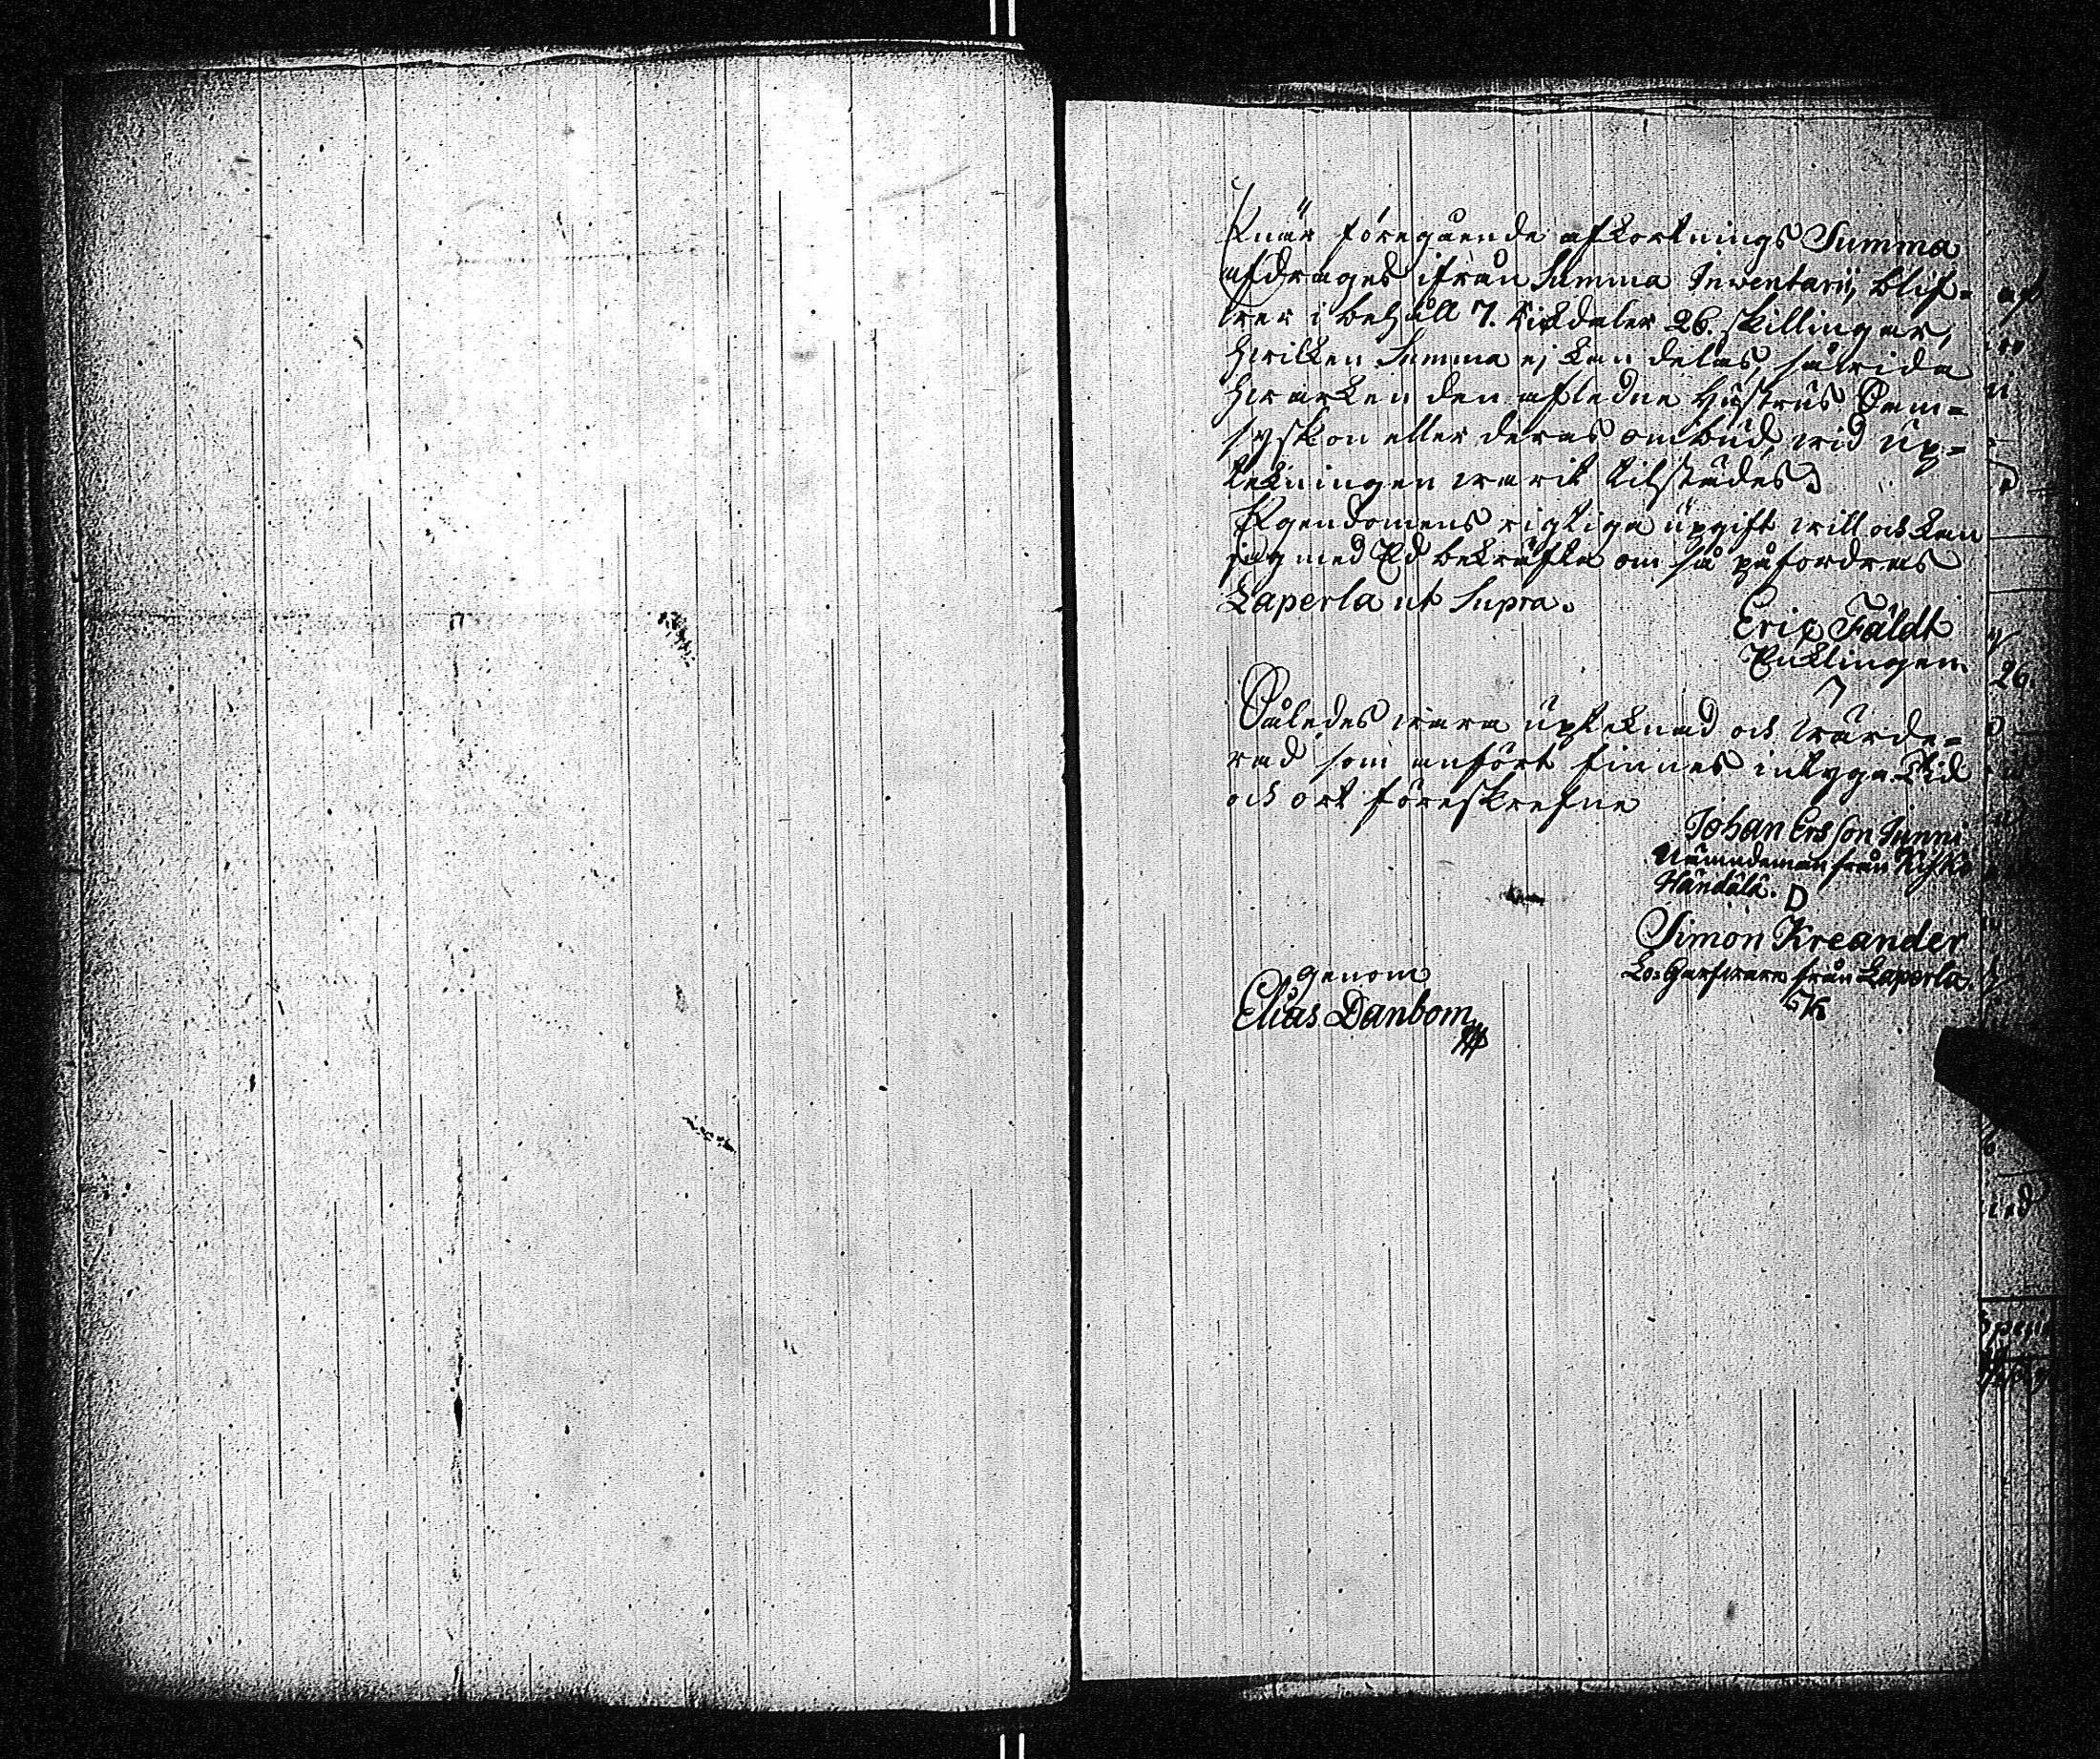 När föregående afkortnings Summa
afdrages ifrån Summa Inwentarii, blif-
wer i behåll 7. Rikdaler 26. skillingar,
hwilken Summa ej kan delas, såwida
hwarken den aflednе Hustrus Sam-
syskon eller deras ombud, wid up-
tekningen warit tilstädes.
Egendomens rigtiga upgift will och kan
jag med Ed bekräfta om så påfordras
Laperla ut Supra.
Eric Fäldt
Enklingen.
Således wara uptecknad och wärde-
rad som anfört finnes intyga. Tid
och ort föreskrefne
Johan Ersson Junni
Nämndeman från
Händälä. D
Simon Kreander
Lo: Garfware från Laperla.
genom
Elias Danbom